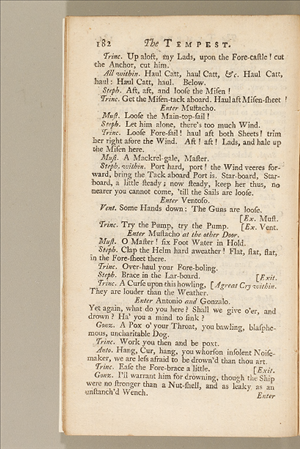 182 The TEMPEST.
Trinc. Up aloft, my Lads, upon the Fore-castle! cut
the Anchor, cut him.
All within. Haul Catt, haul Catt, &c. Haul Catt,
haul: Haul Catt, haul. Below.
Steph. Aft, aft, and loose the Misen!
Trinc. Get the Misen-tack aboard. Haul aft Misen-sheet!
Enter Mustacho.
Must. Loose the Main-top-sail!
Steph. Let him alone, there's too much Wind.
Trinc. Loose Fore-sail! haul aft both Sheets! trim
her right afore the Wind. Aft! aft! Lads, and hale up
the Misen here.
Must. A Mackrel-gale, Master.
Steph. within. Port hard, port! the Wind veeres for-
ward, bring the Tack aboard Port is. Star-board, Star-
board, a little steady; now steady, keep her thus, no
nearer you cannot come, 'till the Sails are loose.
Enter Ventoso.
Vent. Some Hands down: The Guns are loose.
[Ex. Must.
Trinc. Try the Pump, try the Pump. [Ex. Vent.
Enter Mustacho at the other Door.
Must. O Master! six Foot Water in Hold.
Steph. Clap the Helm hard aweather! Flat, flat, flat,
in the Fore-sheet there.
Trinc. Over-haul your Fore-boling.
Steph. Brace in the Lar-board. [Exit.
Trinc. A Curse upon this howling, [A great Cry within.
They are louder than the Weather.
Enter Antonio and Gonzalo.
Yet again, what do you here? Shall we give o'er, and
drown? Ha' you a mind to sink?
Gonz. A Pox o' your Throat, you bawling, blasphe-
mous, uncharitable Dog.
Trinc. Work you then and be poxt.
Anto. Hang, Cur, hang, you whorson insolent Noise-
maker, we are less afraid to be drown'd than thou art.
Trinc. Ease the Fore-brace a little. [Exit.
Gonz. I'll warrant him for drowning, though the Ship
were no stronger than a Nut-shell, and as leaky as an
unstanch'd Wench.
Enter